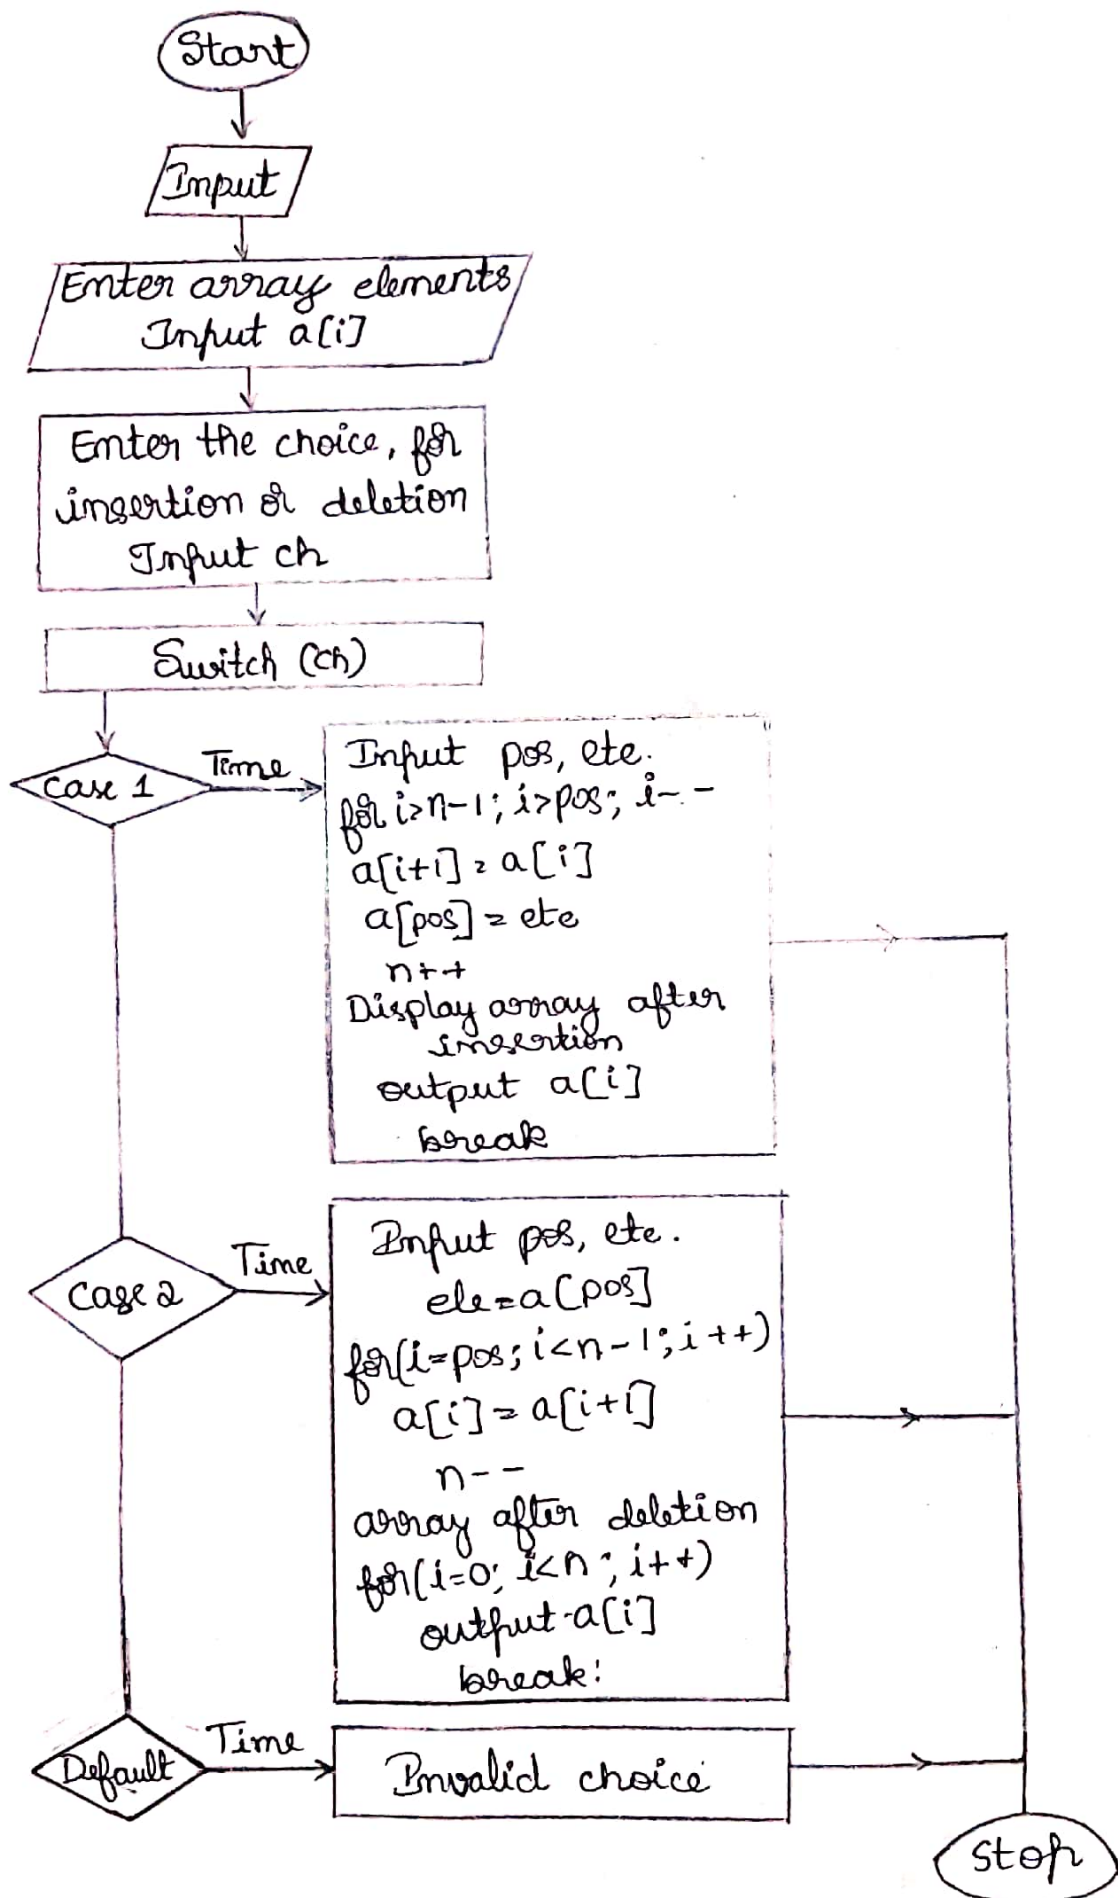 Start
Input
Enter array elements
Input a[i]
Enter the choice, for
insertion or deletion
Input ch
Switch (ch)
Case 1
Time
Input pos, ete.
for i>n-1; i>pos; i--
a[i+1] = a[i]
a[pos] = ete
n++
Display array after
insertion
output a[i]
break
Case 2
Time
Input pos, ete.
ele=a[pos]
for(i=pos; i<n-1; i++)
a[i] = a[i+1]
n--
array after deletion
for(i=0; i<n; i++)
output a[i]
break:
Default
Time
Invalid choice
Stop